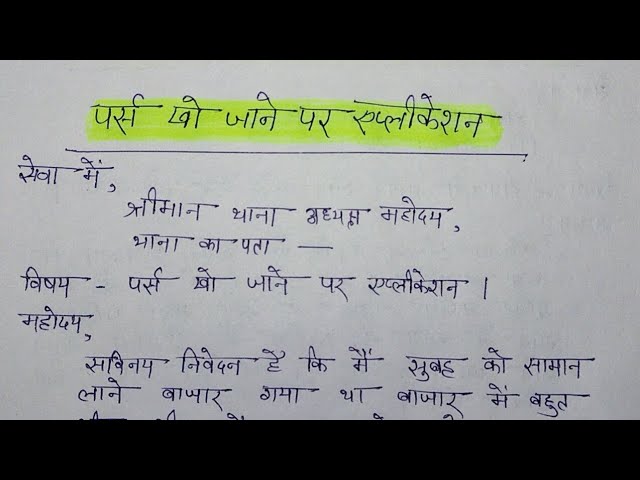 पर्स खो जाने पर एप्लीकेशन
सेवा में,
श्रीमान थाना अध्यक्ष महोदय,
थाना का पता —
विषय - पर्स खो जाने पर एप्लीकेशन ।
महोदय,
सविनय निवेदन है कि मैं सुबह को सामान
लाने बाजार गया था बाजार में बहुत